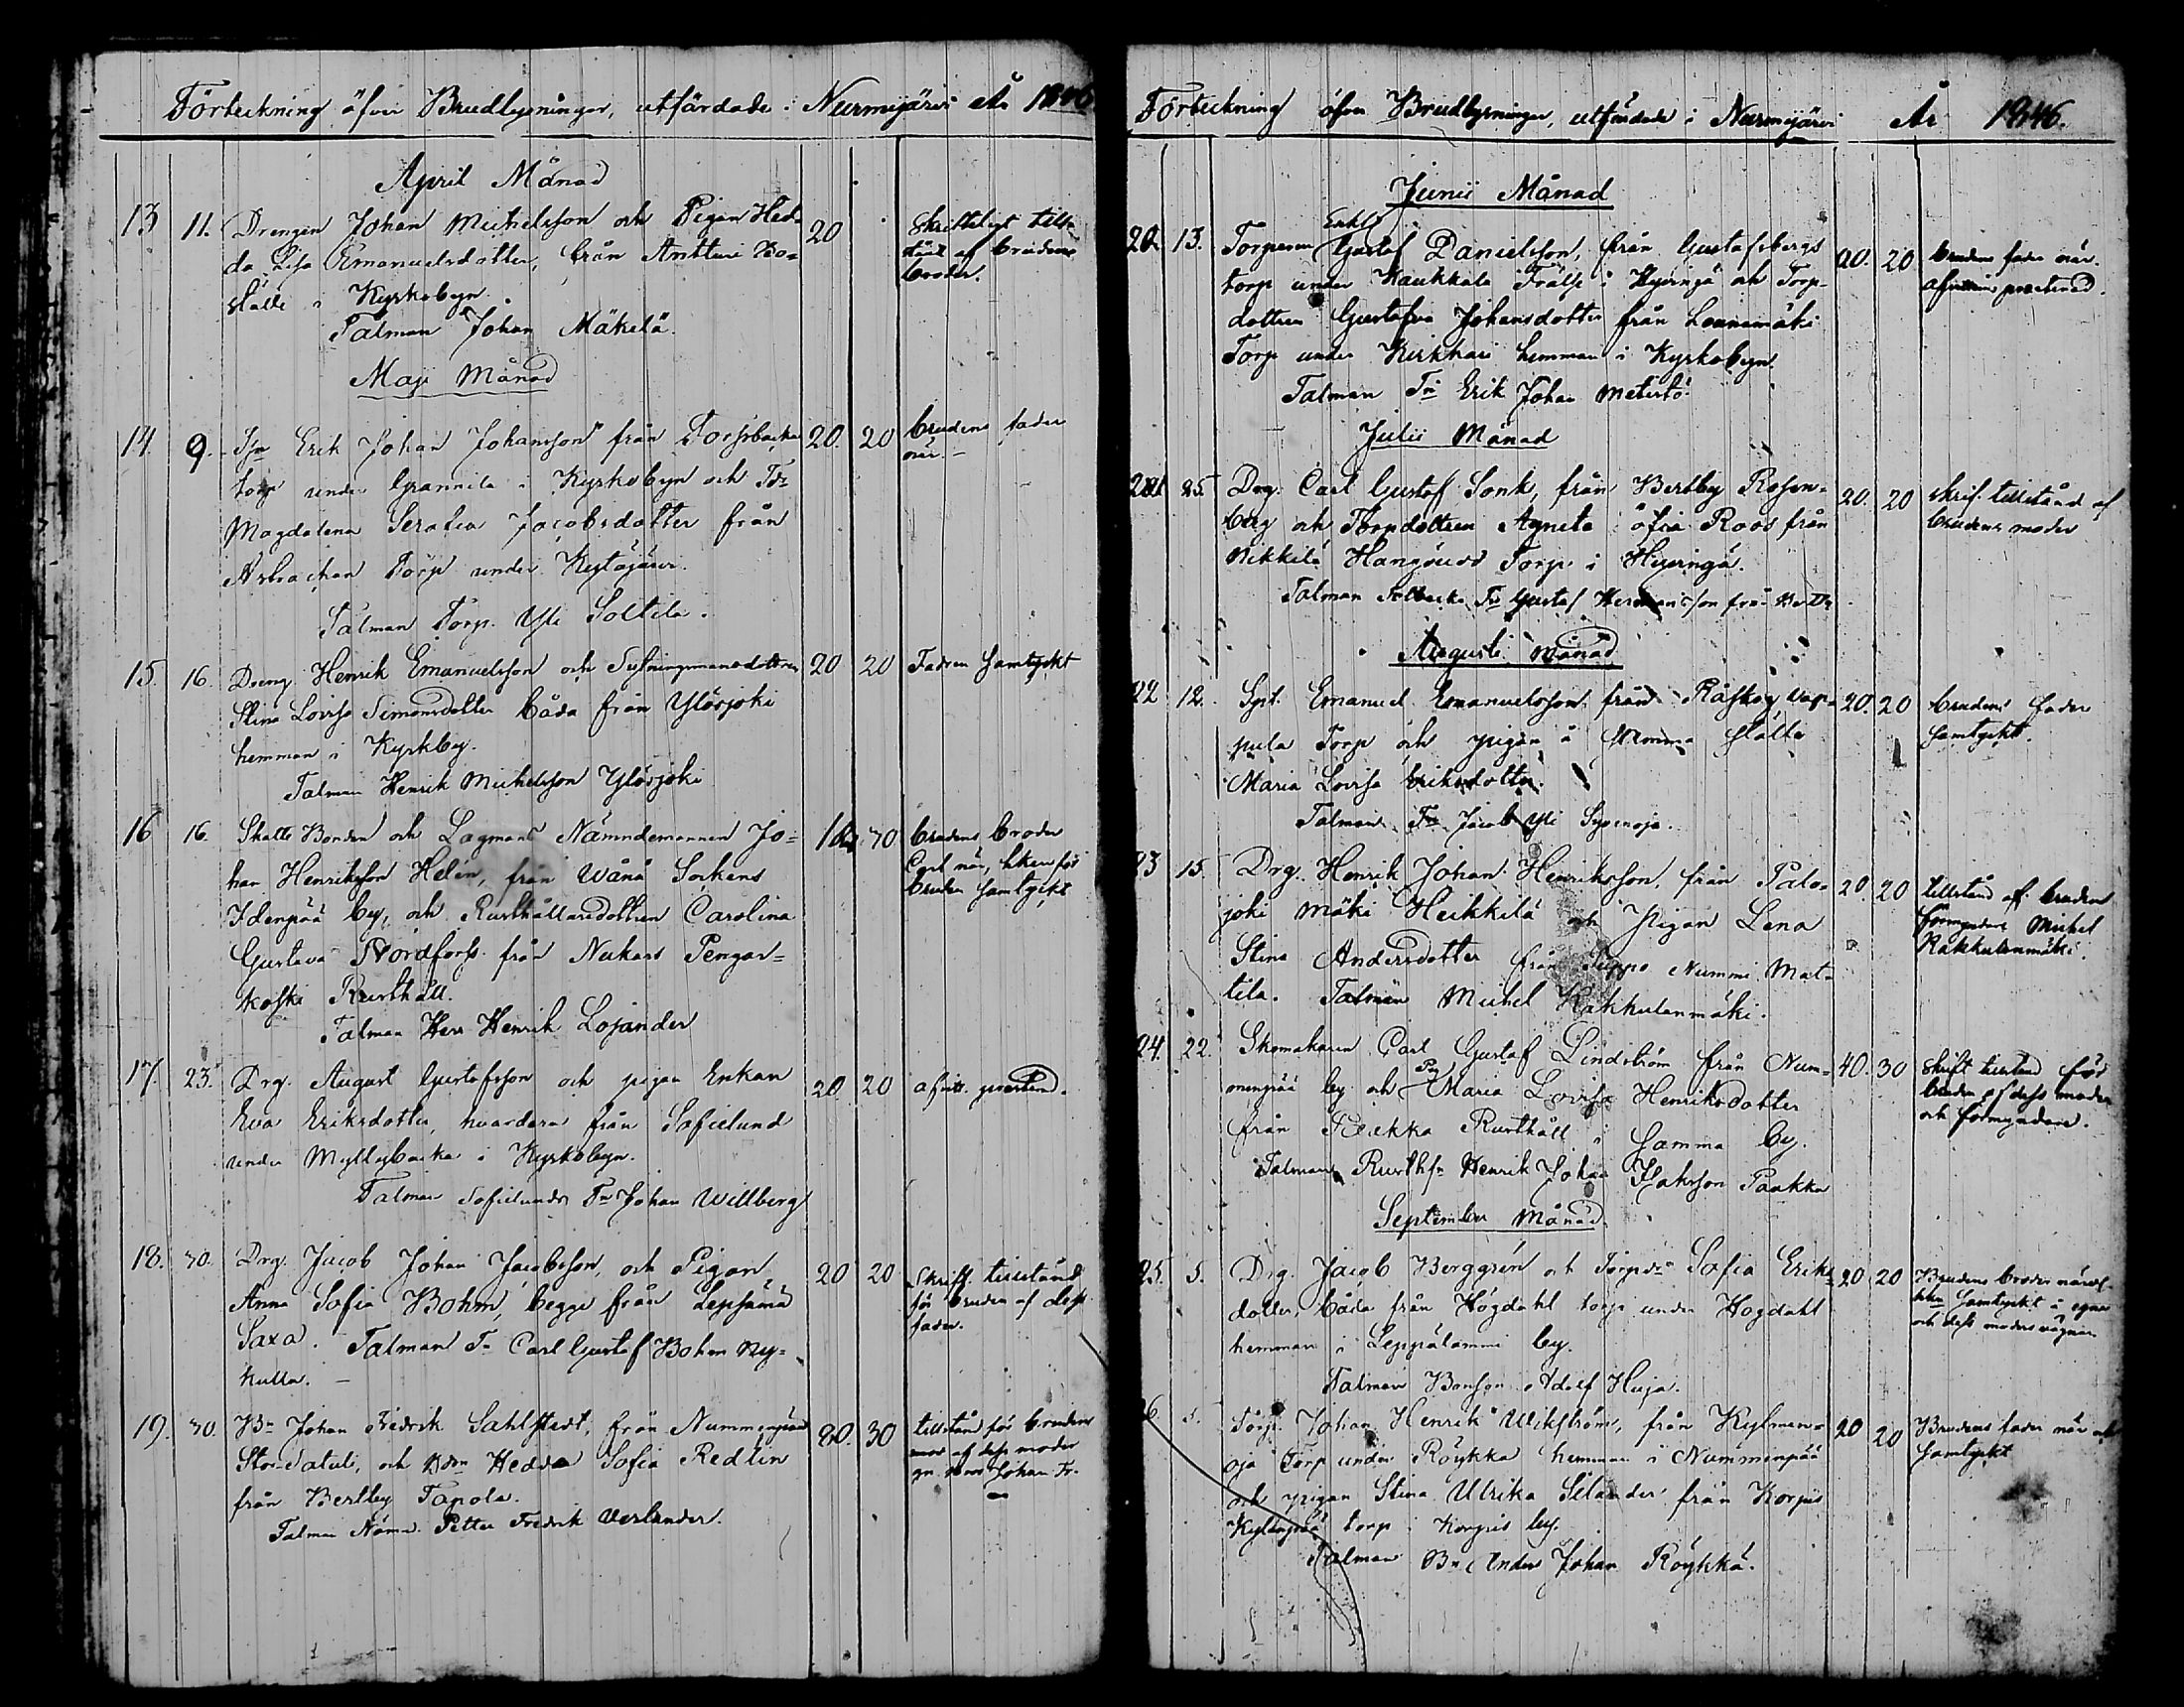 Förteckning öfver Brudlysningar, utfärdade i Nurmijärvi År 1846
April Månad
13 11. Drengen Johan Michelsson och Pigan Hed= 20 Skrifteligt till=
da Lisa Emanuelsdotter, från Anttura Bo= stånd af brudens
ställe i Kyrkobyn. broder.
Talman Johan Mäkelä.
Maji Månad
14. 9. Erik Johan Johansson från Forssbacka 20. 20 brudens fader
torp under Grannila i Kyrkobyn och när.
Magdalena Serafia Jacobsdotter från
Torp under Kytäjärvi.
Talman Torp. Yli Soltila.
15. 16. Dreng. Henrik Emanuelsson och 20 20 Fadren samtyckt
Stina Lovisa Simonsdotter båda från Ylösjoki
hemman i Kyrkby.
Talman Henrik Michelsson Ylösjoki
16 16. Skatte Bonden och Lagmans Nämndemannen Jo= 30 brudens broder
han Henriksson Helen, från Wånå Sockens Carl när,
Idenpää by, och Rusthållaredottren Carolina bruden samtyckt
Gustava Nordforss från Nukars Pengar=
koski Rusthåll.
Talman Herr Henrik Lojander
17. 23. Drg. August Gustafsson och pigan Enkan 20 20 afvitt. presterad.
Eva Eriksdotter, hvardera från Sofielund
under Myllybacka i Kyrkobyn.
Talman Sofielunds Tr Johan Willberg
18. 30. Drg. Jacob Johan Jacobsson, och Pigan 20 20 Skriff. tillstånd
Anna Sofia Bohm, begge från Lepsämä för bruden af dess
Saxa. Talman Tr Carl Gustaf Bohm Ny= fader.
kulla.
19. 30. Bn Johan Fredrik Sahlstedt, från Nummenpää 20. 30 tillstånd för brudens
Stor-Datuli, och Bdn Hedda Sofia Redlin af dess moder
från Bertby Tapola. Johan Fr.
Talman Nämd. Petter Fredrik Verlander.
Förteckning öfver Brudlysningar, utfärdade i Nurmijärvi År 1846.
Junii Månad
Enkl
20 13. Torparen Gustaf Danielsson, från Gustafsbergs 20. 20 brudens fader när.
torp under Kaukkala Frälse i Hyvingä och Torp= presterad.
dottren Gustafva Johansdotter från Lounamäki
Torp under Kirkhari hemman i Kyrkobyn
Talman Tr Erik Johan
Julii Månad
21 25. Drg. Carl Gustaf Sonk, från Bertby Rosen= 20. 20 skrif. tillstånd af
berg och Torpdottren Agneta Roos från brudens moder
Nikkilä Torp i Hyvingä.
Talman Gustaf Hermansson från
Augusti Månad
22 12. Emanuel Emanuelsson från Råskog Vap= 20. 20 brudens fader
pula Torp och pigan å samma ställe samtyckt.
Maria Lovisa Eriksdotter.
Talman Tr Jacob Yli Sepenoja.
23 15. Drg. Henrik Johan Henriksson, från Palo= 20. 20 tillstånd af brudens
joki Mäki Heikkilä och Pigan Lena förmyndare Michel
Stina Andersdotter från Nummi Mat= Kakkulanmäki.
tila. Talman Michel Kakkulanmäki.
24. 22. Skomakaren Carl Gustaf Lindström från Num= 40. 30 skrift tillstånd för
menpää by och Pig Maria Lovisa Henriksdotter bruden af dess moder
från Pekka Rusthåll i samma by. och förmyndare.
Talman Henrik Johan Isaksson Paakka
September Månad.
25. 5. Drg. Jacob Berggrén och Sofia Eriks= 20 20 Brudens broder
dotter, båda från Högdahl torp under Högdahl samtyckt å egna
hemman i Leppälammi by. och dess moders vägnar
Talman Adolf Huja.
26 5. Torp. Johan Henrik Wikström, från Kylmän= 20 20 Brudens fader när och
oja Torp under Röykkä hemman i Nummenpää samtyckt
och pigan Stina Ulrika Silander från Korpis
torp i Korpis by.
Talman Bn Anders Johan Röykkä.